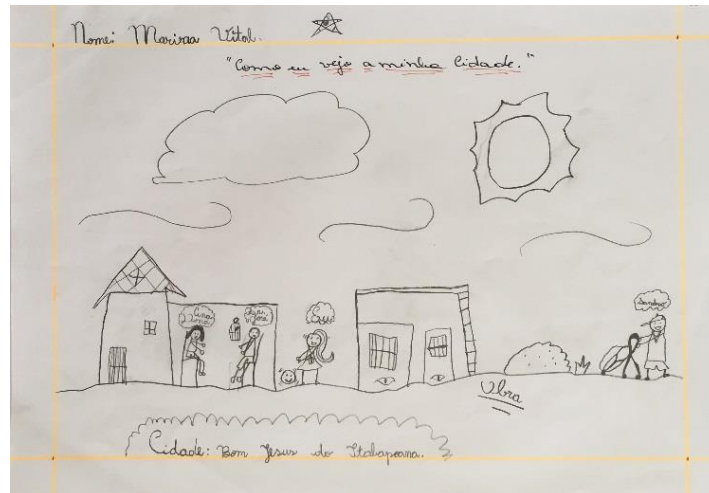 Nome: Mariraa Vital.
"Como eu vejo a minha Cidade."
Eu
Sandro
Obra
Cidade: Bom Jesus do Itabapoana.